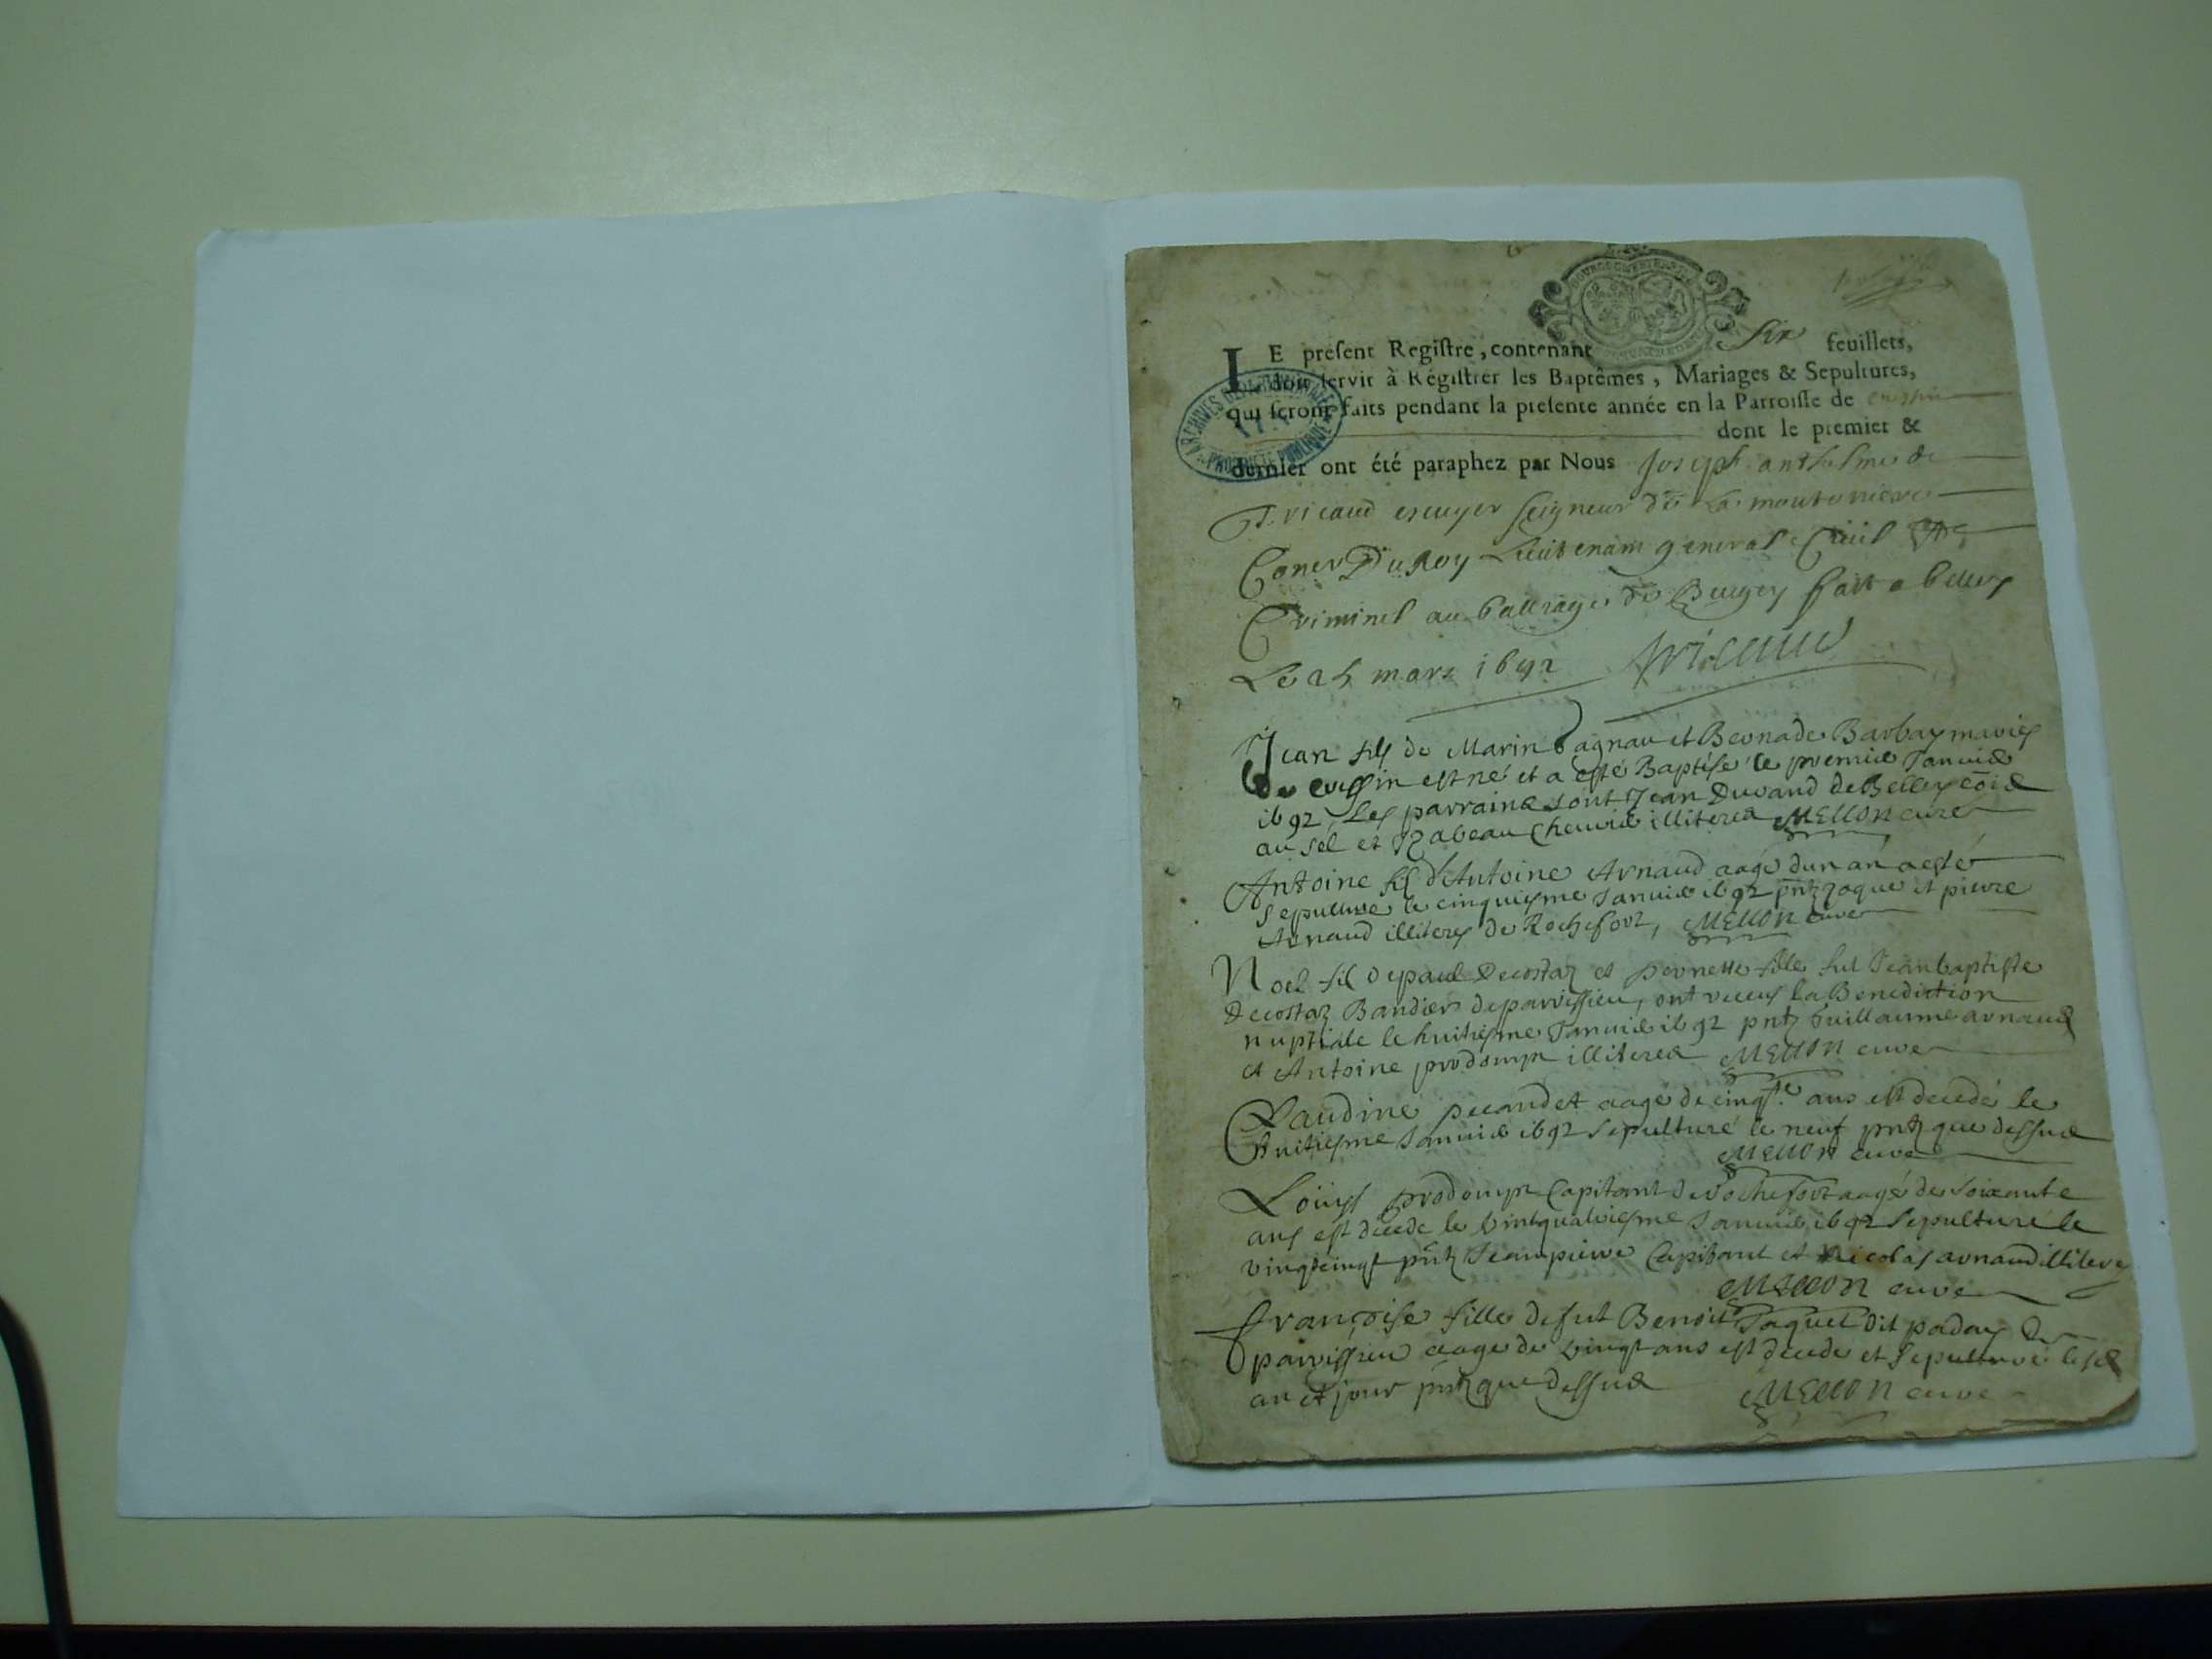 LE present Registre, contenant six feuillets,
doit servir à Régistrer les Baptêmes, Mariages & Sepultures,
qui seront faits pendant la presente année en la Parroisse de
dont le premier &
dernier ont été paraphez par Nous Joseph anthelme de
Tricaud escuyer seigneur de La
Coner Du Roy Lieutenant general Civil
Criminel au balliage de Bugey fait a belley
Le mars 1692 Tricaud
ARCHIVES DEPARTEMENTALES
PROPRIETE PUBLIQUE
Jean fils de Marin et Bernade Barbay mariés
de cressin est né et a esté Baptisé le premier Janvie
1692, Les parrains sont Jean Durand de Belley
au sel et illiteres MELLON curé
Antoine fils d'Antoine Arnaud aagé d'un an a esté
sepulture le cinquiesme Janvie 1692 pntz et pierre
Arnaud illiteres de Rochefort, MELLON cure
Noel fil de paul Decostaz et pernette fille fut Jeanbaptiste
Decostaz de parvissieu, ont receus la Benediction
nuptiale le huitiesme Janvie 1692 pntz Guillaume arnaud
et Antoine prodomp illiteres MELLON cure
Claudine aagé de ans est decedé le
huitiesme Janvie 1692 sepulturé le neuf pntz que dessus
MELLON cure
Louys prodomp Capitant de rochefort aagé de soixante
ans est decede le vintquatriesme Janvie 1692 sepulturé le
vingtcinq pntz Jeanpierre Capitant et Nicolas arnaud illiteres
MELLON cure
françoise fille de fut Benoit Jaquet dit de
parvissieu aagé de vingt ans est decede et sepulturé
an et jour pntz que dessus MELLON cure